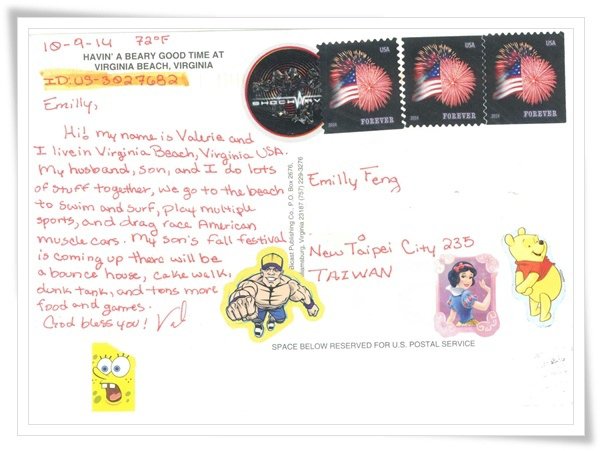 10-9-14 72°F
HAVIN' A BEARY GOOD TIME AT
VIRGINIA BEACH, VIRGINIA
ID: US-3027682
Emilly,
Hi! My name is Valerie and
I live in Virginia Beach, Virginia USA.
My husband, son, and I do lots
of stuff together, we go to the beach
to swim and surf, play multiple
sports, and drag race American
muscle cars. My son's fall festival
is coming up there will be
a bounce house, cake walk,
dunk tank, and tons more
food and games.
God bless you!
SHOCKWAVE
USA
2014 FOREVER
USA
2014 FOREVER
USA
2014 FOREVER
Publishing Co. P.O. Box 2676,
Virginia 23187 (757) 229-3276
Emilly Feng
New Taipei City 235
TAIWAN
SPACE BELOW RESERVED FOR U.S. POSTAL SERVICE